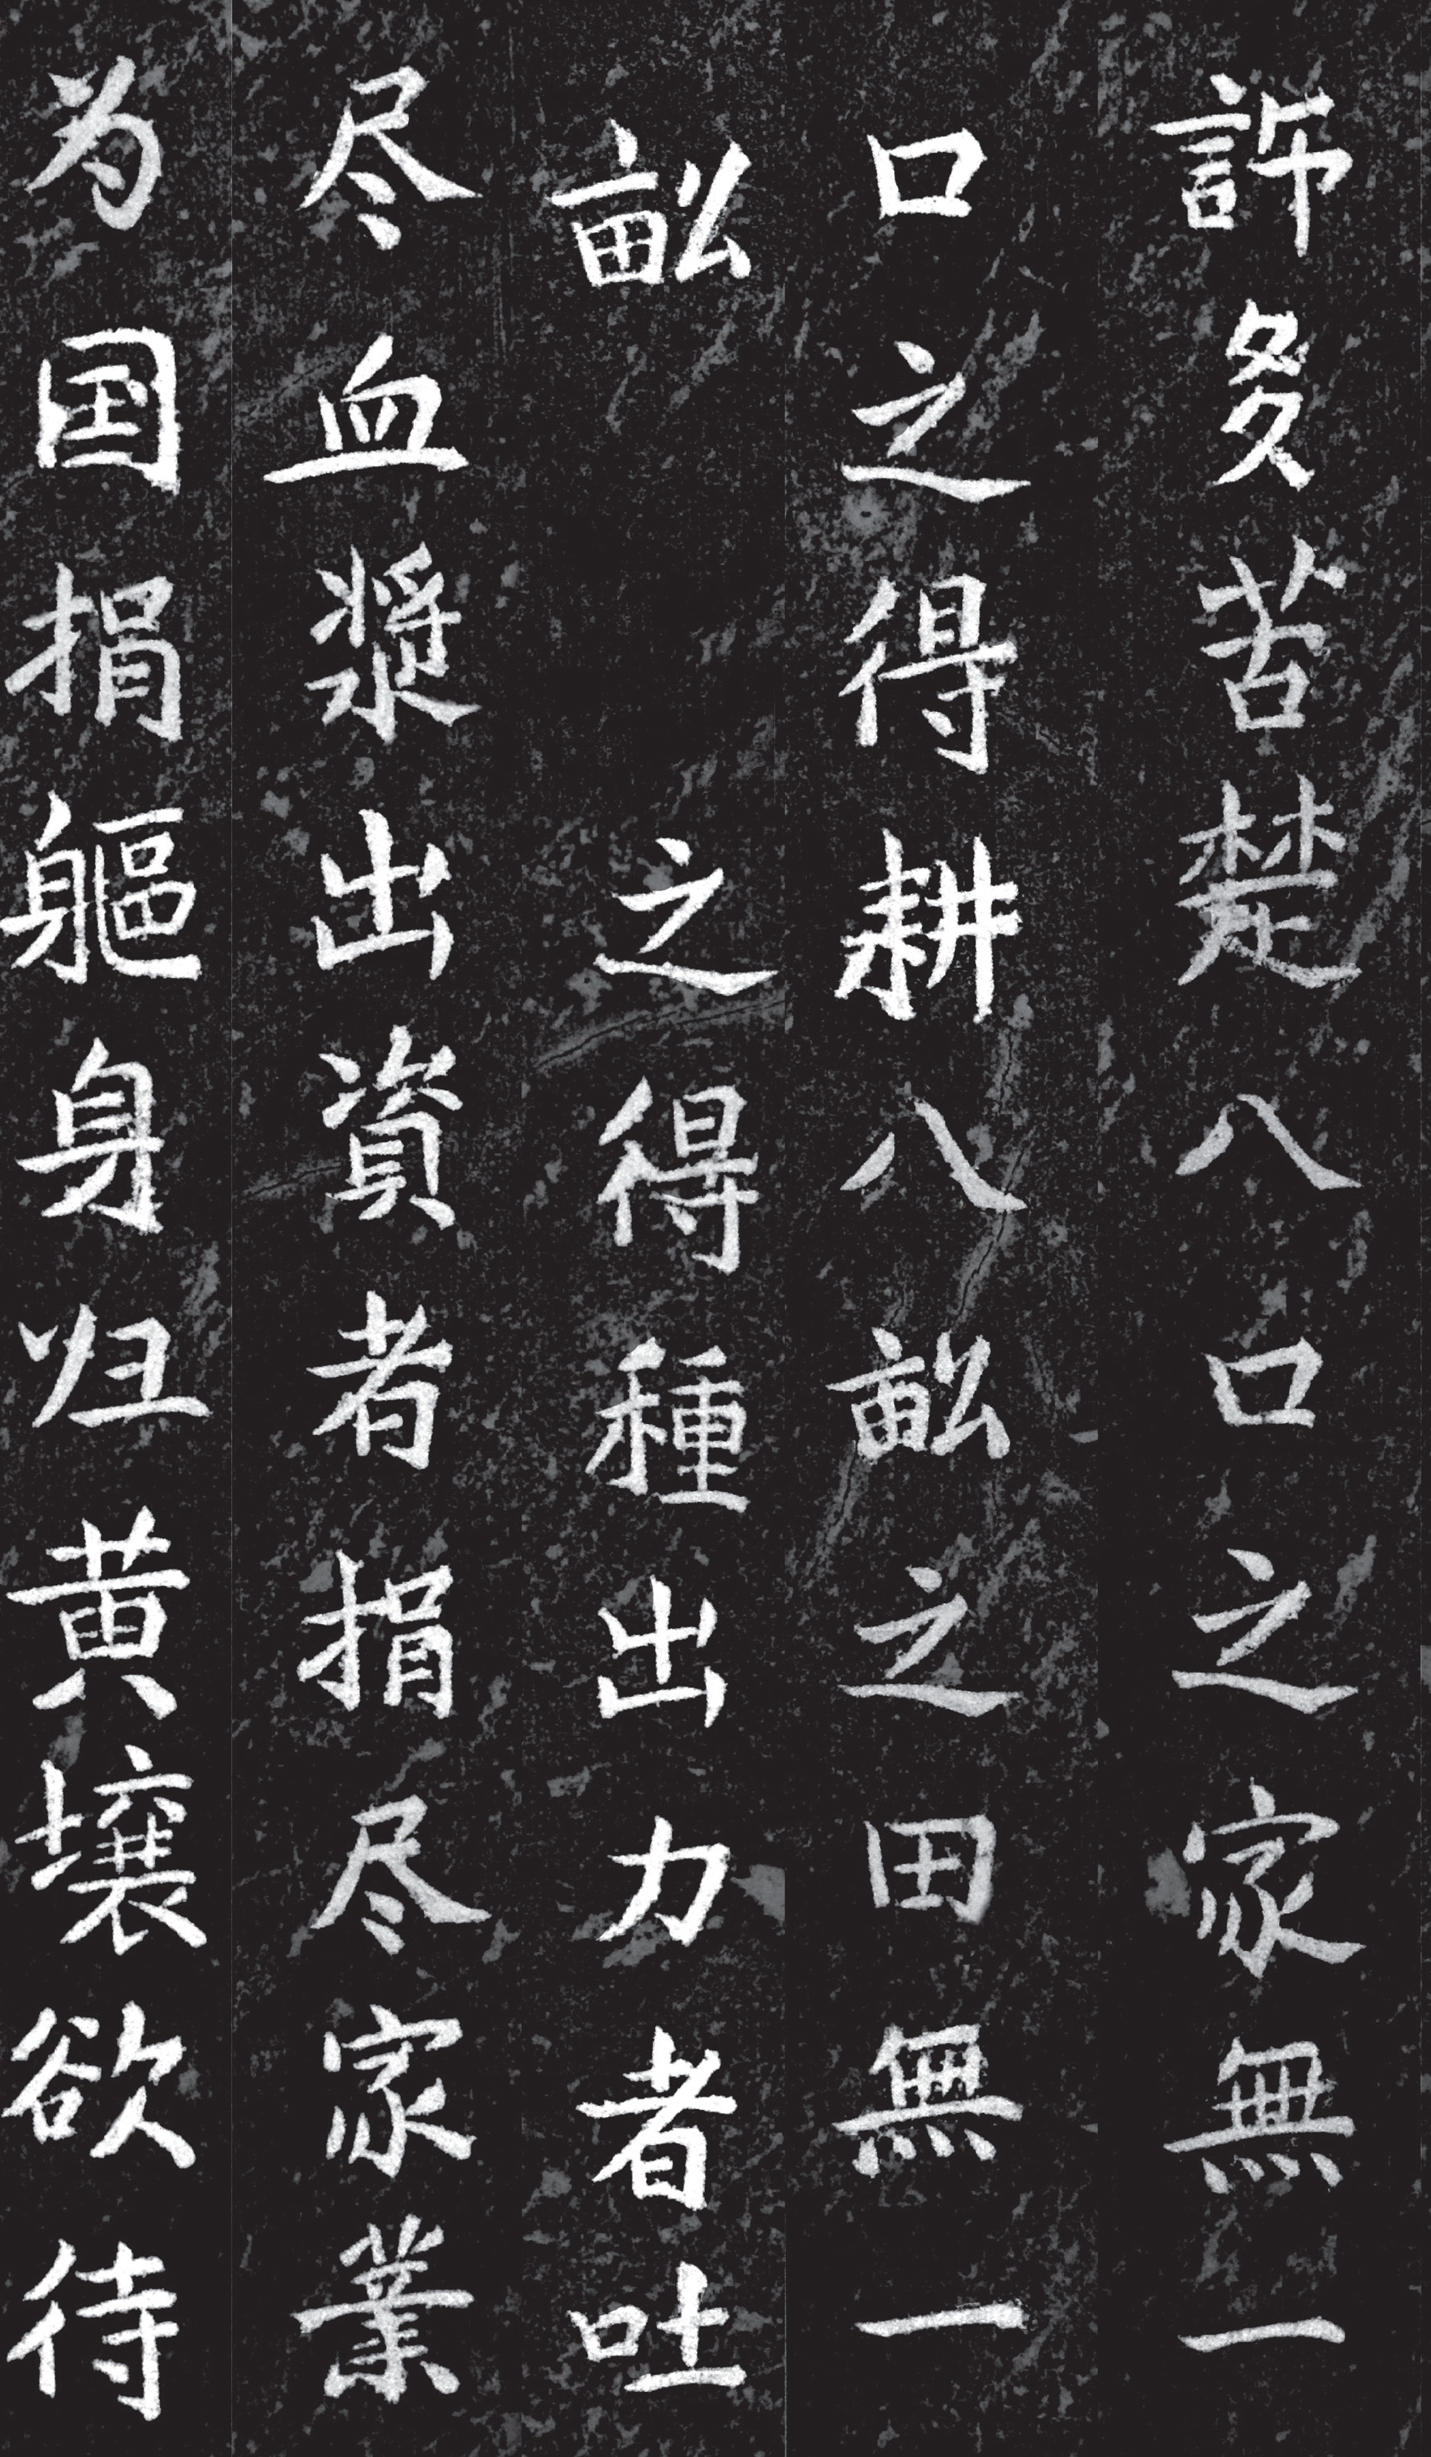 許多苦楚八口之家無一
口之得耕八畝之田無一
畝之得種出力者吐
尽血漿出資者捐尽家業
为国捐軀身归黄壤欲待